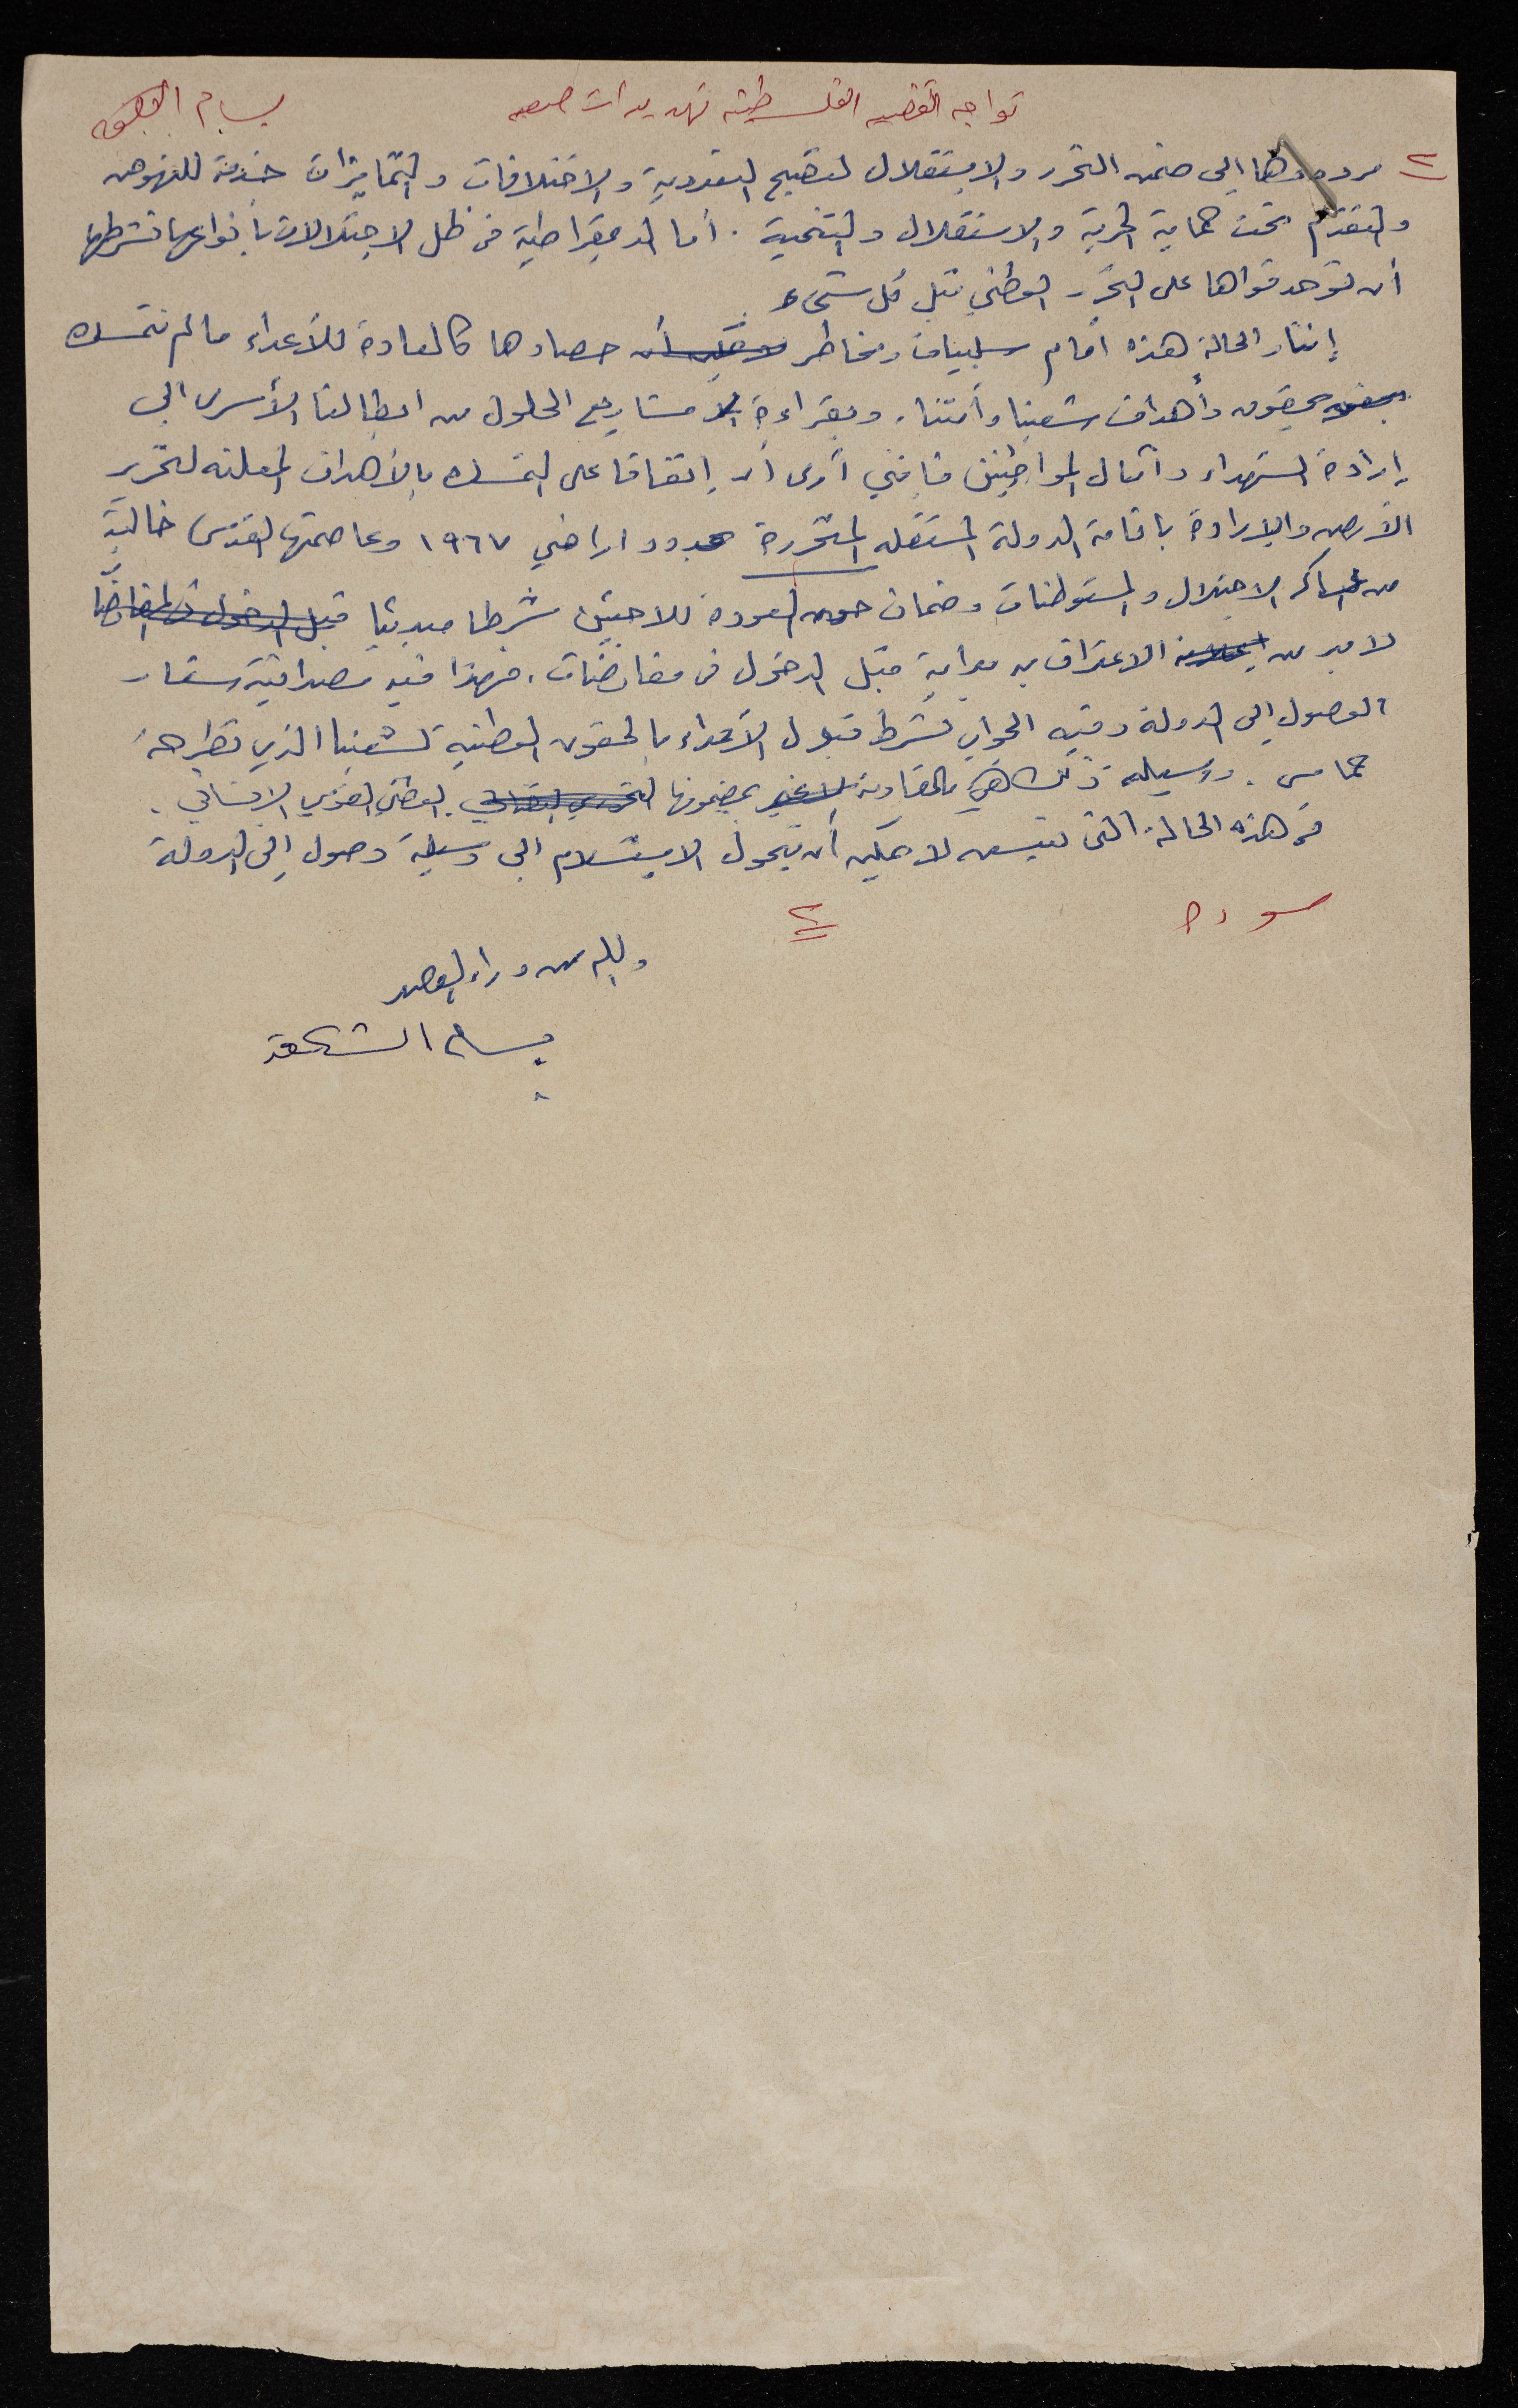 تواجه القضيه الفلسطينيه تهديدات صعبه
بسام الشكعه
٢ مردودها إلى ضمن التحرر والاستقلال لتصبح التعددية والاختلافات والتمايزات خدمة للنهوض
والتقدم تحت حماية الحرية والاستقلال والتنمية . أما الديمقراطية في ظل الاحتلالات بأنواعها تشرطها
أن توحد قواها على التحرر الوطني قبل كل شيء
إننا والحالة هذه أمام سلبيات ومخاطر حصادها كالعادة للأعداء ما لم نتمسك
بحقوق وأهداف شعبنا وأمتنا . وبقراءة مشاريع الحلول من ابطالنا الأسرى الى
إرادة الشهداء وآمال المواطنين فإنني أرى أن إتفاقا على التمسك بالأهداف المعلنه لتحرير
الأرض والإرادة باقامة الدولة المستقله المتحررة بحدود اراضي ١٩٦٧ وعاصمتها القدس خالية
من عساكر الاحتلال والمستوطنات وضمان حق العودة للاجئين شرطا مبدئيا قبل الدخول في المفاوضات
لا بد من الاعتراف به بداية قبل الدخول في مفاوضات . فهذا فيه مصداقية شعار
الوصول إلى الدولة وفيه الجواب لشرط قبول الأعداء بالحقوق الوطنيه لشعبنا الذي تطرحه
حماس . ووسيلة ذلك هي المقاومة بمضمونها الوطني القومي الإنساني .
في هذه الحالة التي نعيش لا يمكن أن يتحول الاستسلام الى وسيلة وصول إلى الدولة
مسوده
٢
والله من وراء القصد
بسام الشكعة